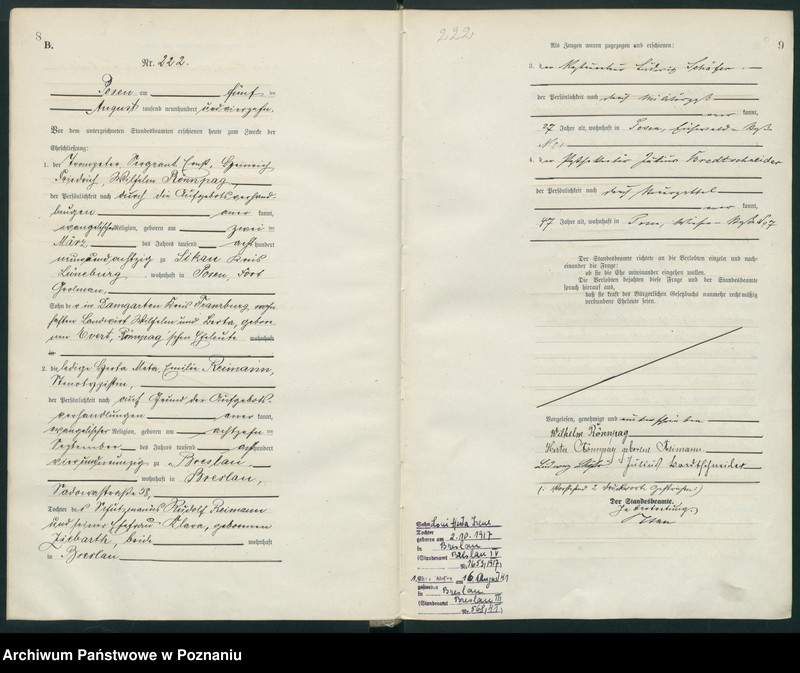 8
B.
Nr. 222.
Posen am fünf ten
August tausend neunhundert und vierzehn.
Vor dem unterzeichneten Standesbeamten erschienen heute zum Zwecke der
Eheschließung:
1. der Trompeter, Sergeant Ernst, Heinrich
Friedrich, Wilhelm Rönnpag,
der Persönlichkeit nach durch die Aufgebotsverhand-
lungen aner kannt,
evangelischer Religion, geboren am zwei ten
März des Jahres tausend acht hundert
neunundachtzig zu Kreis
Lüneburg, wohnhaft in Posen, Fort
Grolman,
Sohn des in Damgarten Kreis Franzburg, wohn-
haften Landwirt Wilhelm und Berta, gebore-
nen Evert, Rönnpag'schen Eheleute wohnhaft
in
2. die ledige Herta Meta, Emilie Reimann,
Stenotypistin,
der Persönlichkeit nach auf Grund der Aufgebots-
verhandlungen aner kannt,
evangelischer Religion, geboren am achtzehn ten
September des Jahres tausend acht hundert
vierundneunzig zu Breslau
wohnhaft in Breslau,
Sadowastraße 58,
Tochter des Schutzmanns Rudolf Reimann
und seiner Ehefrau Klara, geborenen
Ziebarth, beide wohnhaft
in Breslau
222
9
Als Zeugen waren zugezogen und erschienen:
3. der Ludwig Schäfer
der Persönlichkeit nach durch Militärpaß
aner kannt,
27 Jahre alt, wohnhaft in Posen,
4. der Julius Bordtschneider
der Persönlichkeit nach durch
aner kannt,
47 Jahre alt, wohnhaft in Posen,
Der Standesbeamte richtete an die Verlobten einzeln und nach-
einander die Frage:
ob sie die Ehe miteinander eingehen wollen.
Die Verlobten bejahten diese Frage und der Standesbeamte
sprach hierauf aus,
daß sie kraft des Bürgerlichen Gesetzbuchs nunmehr rechtmäßig
verbundene Eheleute seien.
Vorgelesen, genehmigt und unterschrieben
Wilhelm Rönnpag
Herta Rönnpag geborene Reimann.
Ludwig Schäfer Julius Bordtschneider
(: Vorstehend 2 Druckworte gestrichen:)
Der Standesbeamte.
In Vertretung.
Sohn
Tochter
geboren am 2.10.1917
in Breslau
(Standesamt Breslau IV
Nr. 1653/1917)
am 16 August 41
in Breslau
(Standesamt Breslau III
Nr. 568/41)
Archiwum Państwowe w Poznaniu